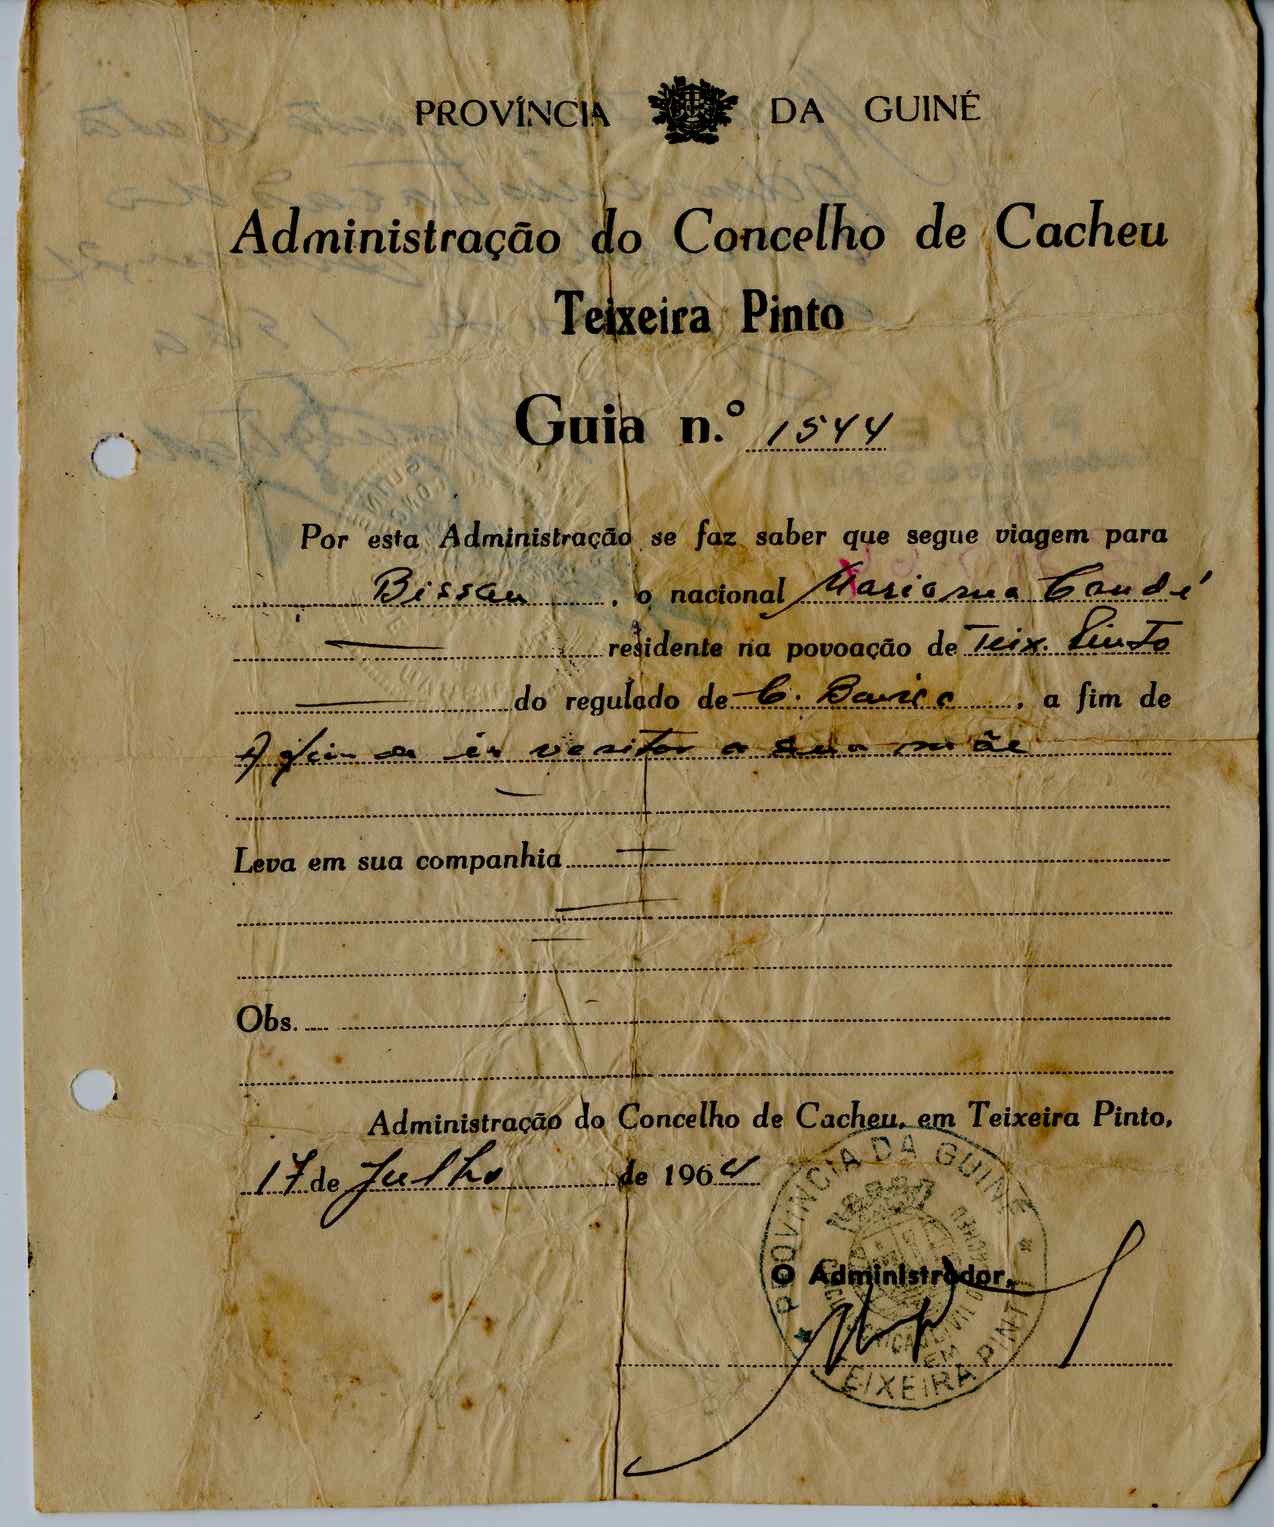 PROVÍNCIA DA GUINÉ
Administração do Concelho de Cacheu
Teixeira Pinto
Guia n.º 1544
Por esta Administração se faz saber que segue viagem para
Bissau, o nacional Mariama Candé
residente na povoação de Teix. Pinto
do regulado de C. , a fim de
A fim de ir vesitar a sua mãe
Leva em sua companhia
Obs.
Administração do Concelho de Cacheu, em Teixeira Pinto,
17 de Julho de 1964
O Administrador,
PROVÍNCIA DA GUINÉ
EM
TEIXEIRA PINTO